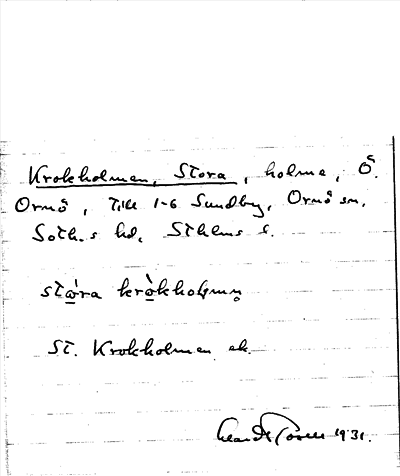 Krokholmen, Stora, holme, Ö.
Ornö, till 1-6 Sundby, Ornö sn,
Soth.s hd, Sthlms s.
stòra kròkholmen
St. Krokholmen ek.
1931.